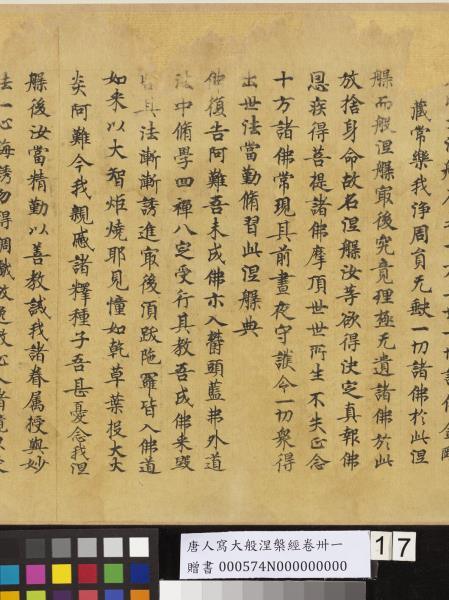 藏常樂我淨周育无缺一切諸佛於此涅
槃而般涅槃冣後究竟理極无遺諸佛於此
放捨身命故名涅槃汝等欲得決定真報佛
恩疾得菩提諸佛摩頂世世所生不失正念
十方諸佛常現其前晝夜守護令一切衆得
出世法當勤脩習此涅槃典
佛復告阿難吾未成佛示入欝頭藍弗外道
法中脩學四禪八定受行其教吾成佛来毀
呰其法漸漸誘進冣後須跋陁羅皆入佛道
如来以大智炬燒耶見幢如乾草葉投大火
炎阿難今我親慼諸釋種子吾甚憂念我涅
槃後汝當精勤以善教誡我諸眷属授與妙
法一心誨誘勿得調戲放逸
唐人寫大般涅槃經卷卅一
贈書 000574N000000000
17